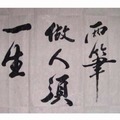 两筆
做人須
一生